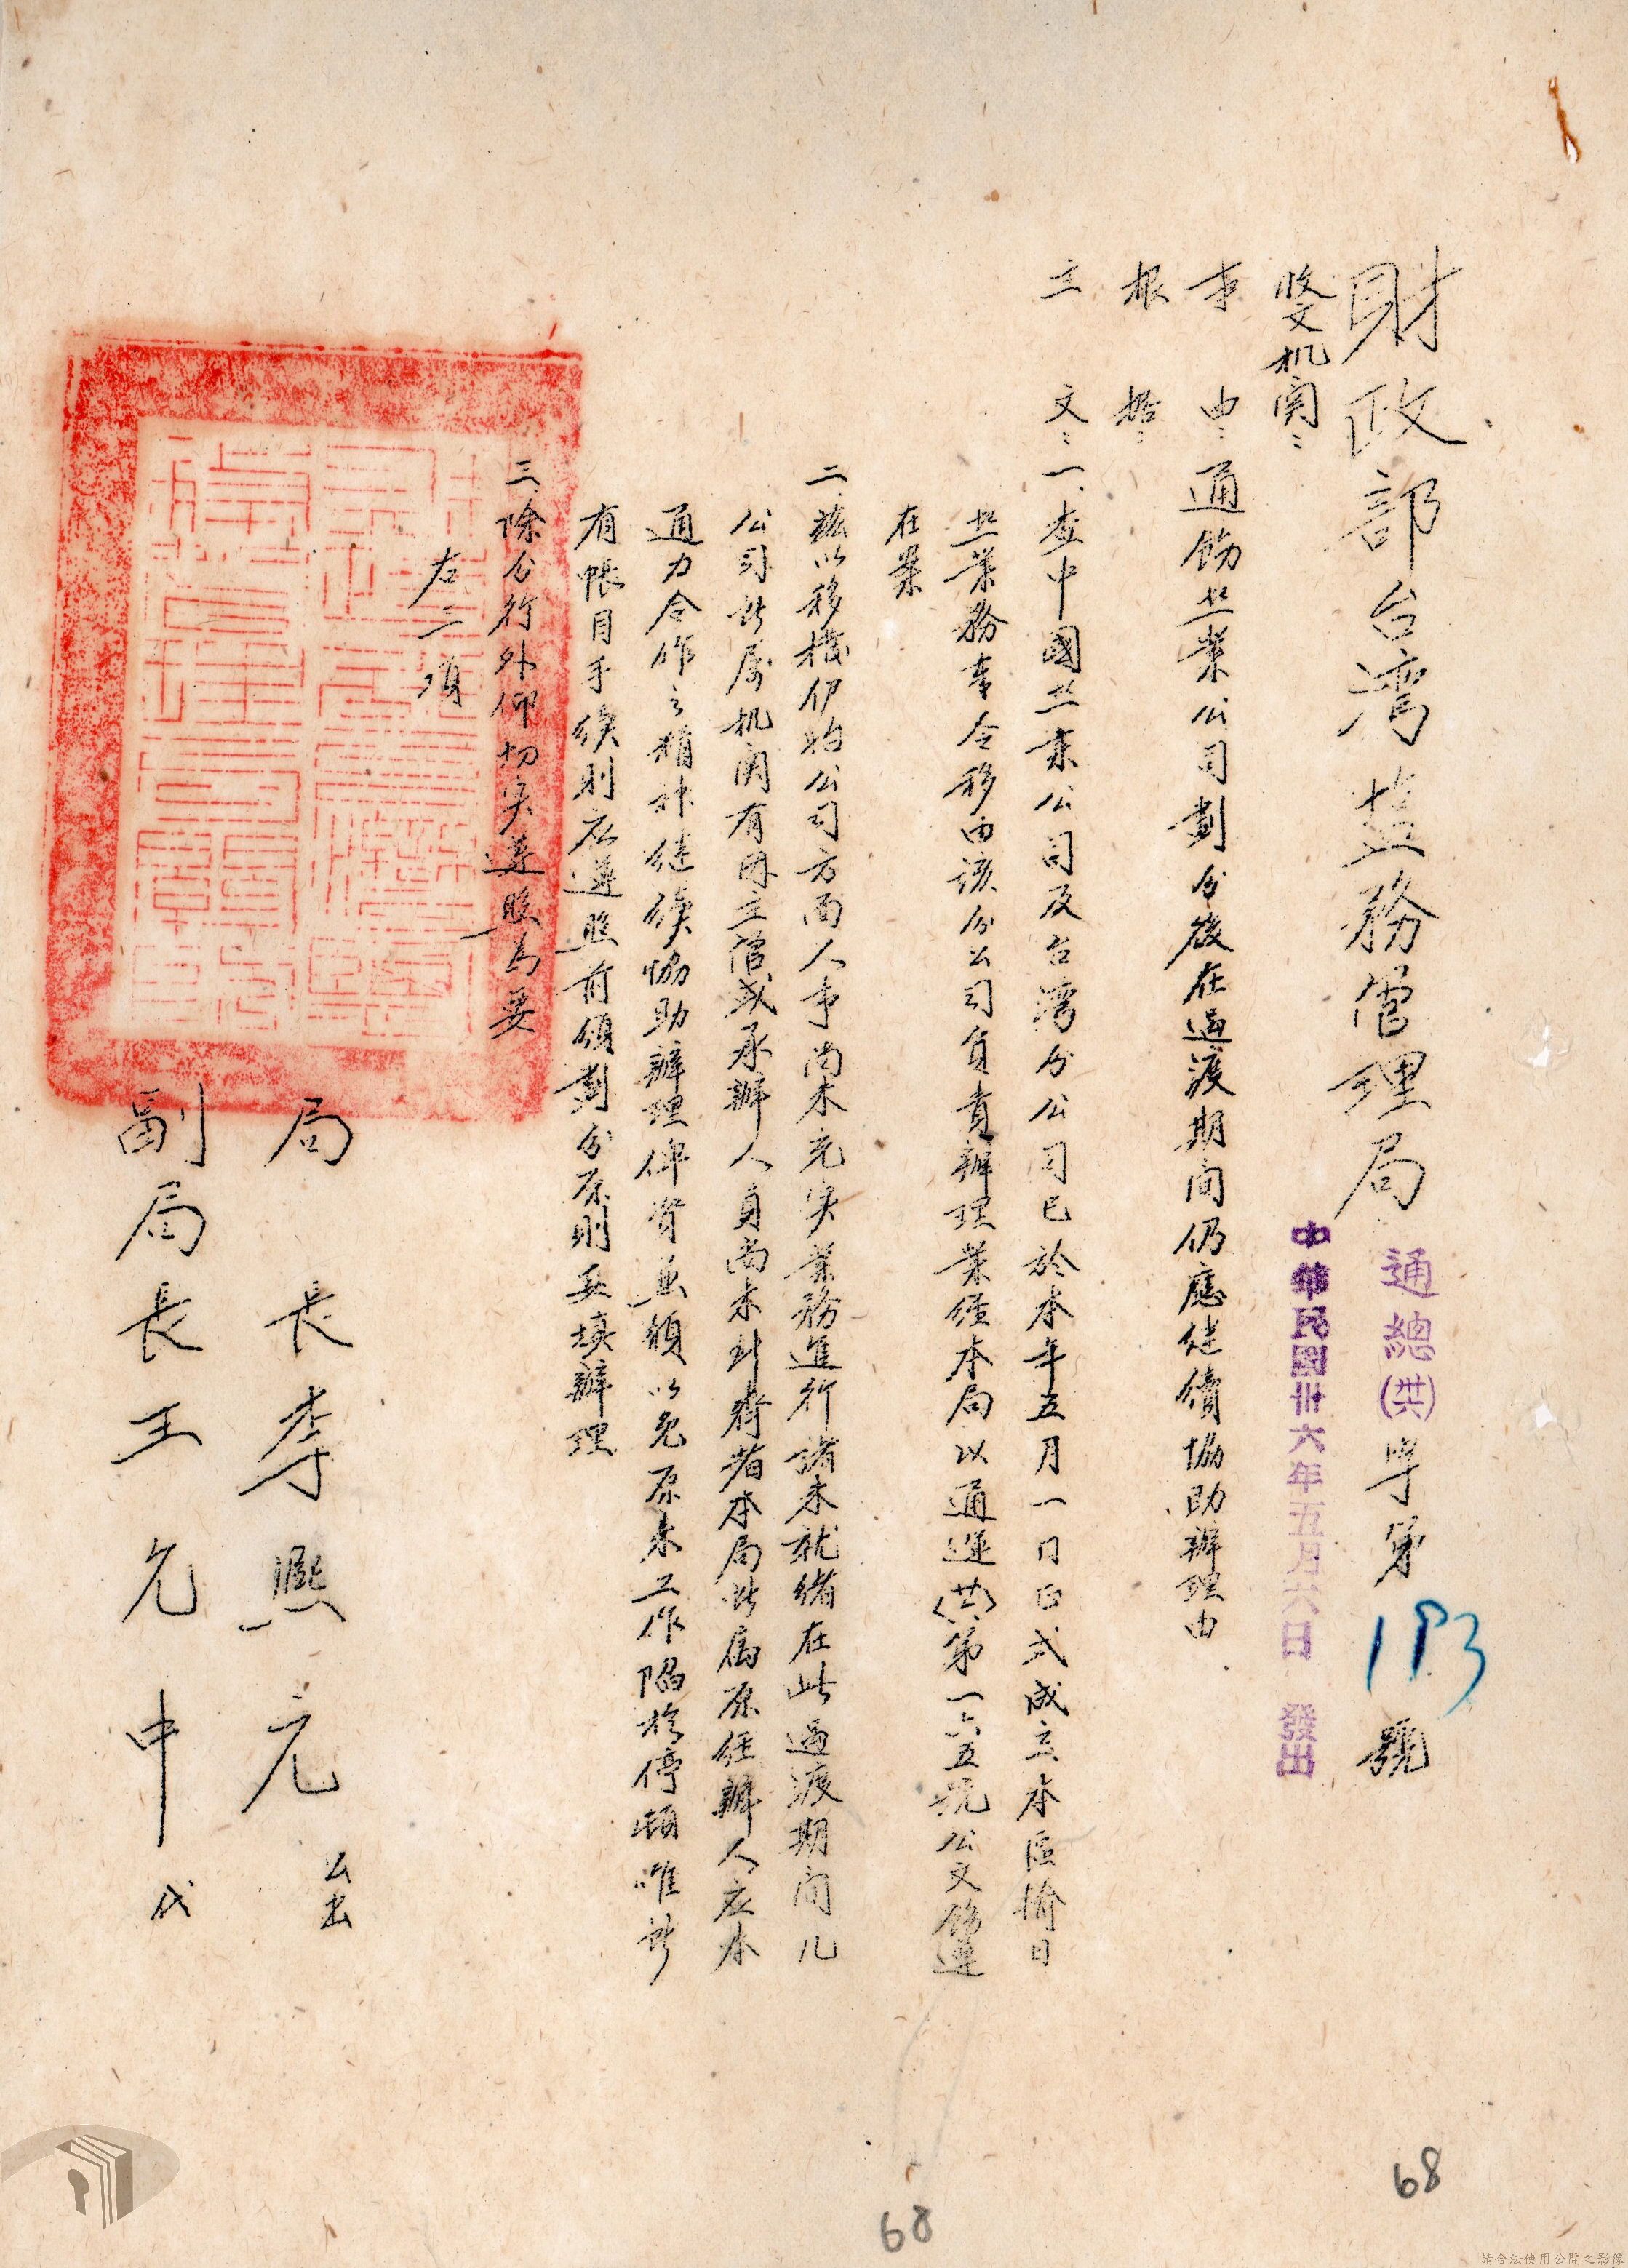 財政部台湾盐務管理局 通總(共)字第193號
中華民國卅六年五月六日 發出
收文机関：
事由：通飭盐業公司劃分後在過渡期间仍應继續協助辦理由
根据：
主文：一、查中國盐業公司及台湾分公司已於本年五月一日正式成立本區撤日
盐業務事仝移由该分公司負責辦理業經本局以通運(共)第一六五號公文飭遵
在案
二、兹以移機伊始公司方面人事尚未充实業務進行諸未就绪在此過渡期间凡
公司所属机関有関主管或承辦人員尚未到將者本局所属原经辦人应本
通力合作之精神继续協助辦理俾資兼顧以免原来工作陷於停頓唯所
有帳目手续則应遵照前颁劃分原則妥填辦理
三、除分行外仰切实遵照為要
右二項
局長李熙元 公出
副局長王允中 代
68
68
請合法使用公開之影像